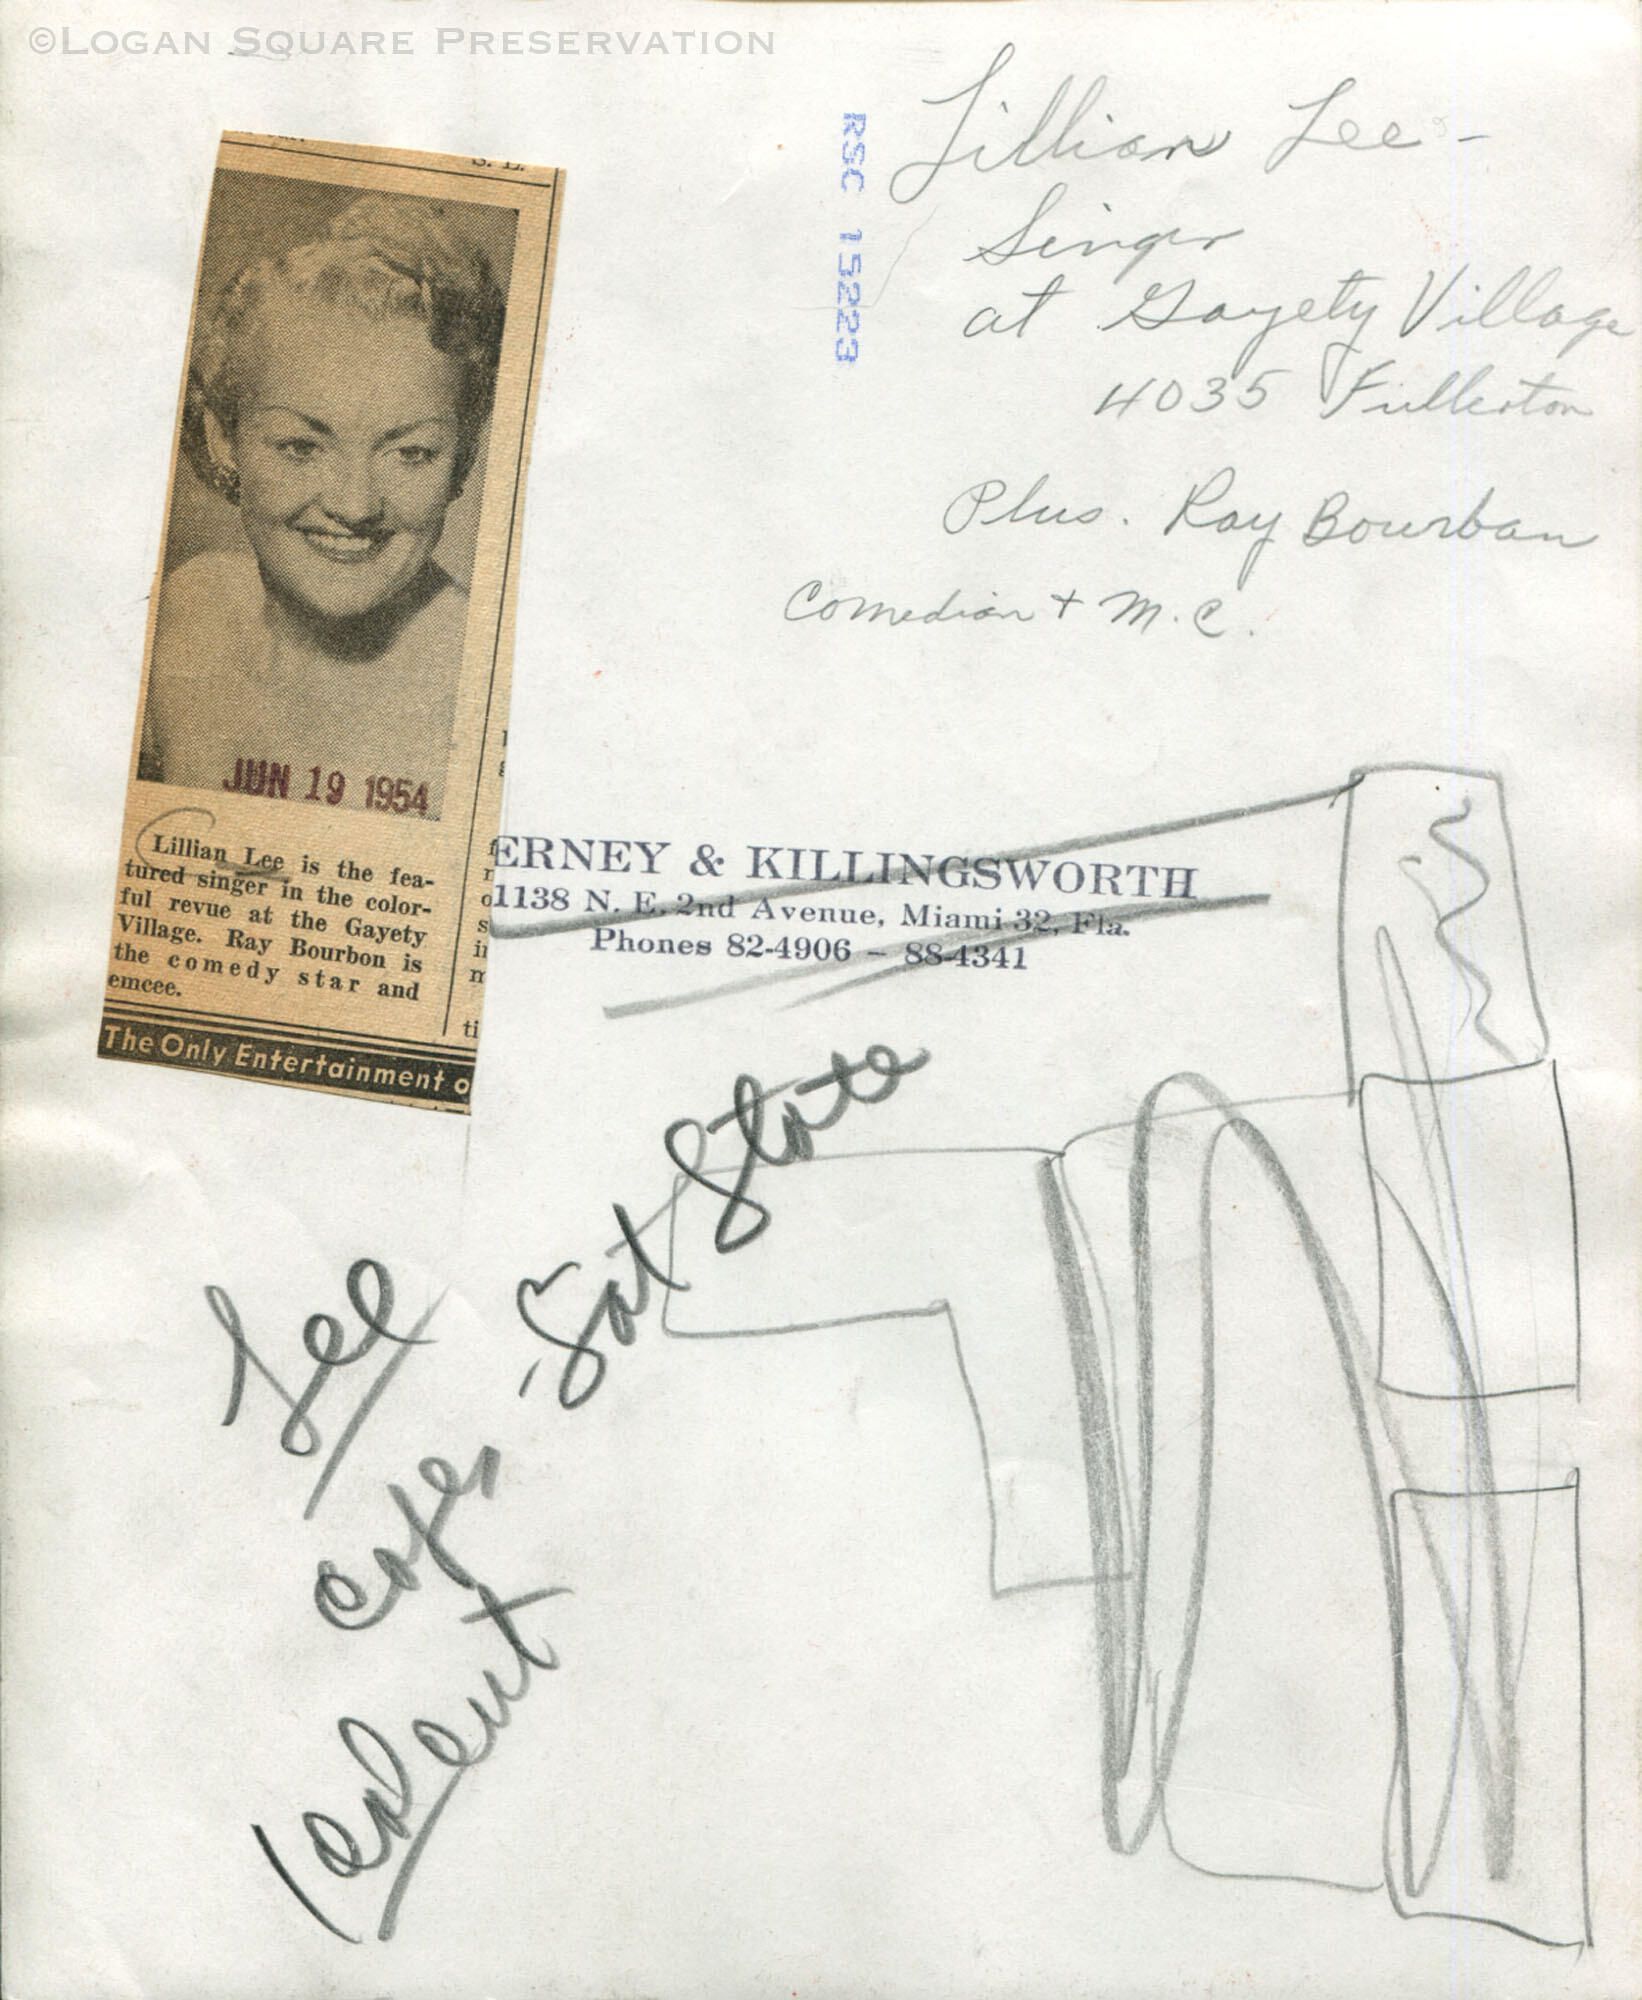 ©LOGAN SQUARE PRESERVATION
Lillian Lee -
Singer
at Gayety Village
4035 Fullerton
Plus. Ray Bourban
Comedian + M.C.
RSC 15223
S. L.
JUN 19 1954
Lillian Lee is the fea-
tured singer in the color-
ful revue at the Gayety
Village. Ray Bourbon is
the comedy star and
emcee.
The Only Entertainment o
ERNEY & KILLINGSWORTH
1138 N. E. 2nd Avenue, Miami 32, Fla.
Phones 82-4906 – 88-4341
Sat State
Lee